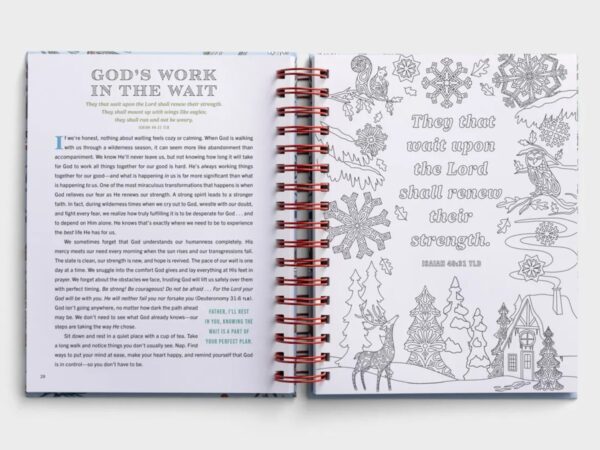 GOD'S WORK
IN THE WAIT
They that wait upon the Lord shall renew their strength.
They shall mount up with wings like eagles;
they shall run and not be weary.
ISAIAH 40:31 TLB
If we're honest, nothing about waiting feels cozy or calming. When God is walking
with us through a wilderness season, it can seem more like abandonment than
accompaniment. We know He'll never leave us, but not knowing how long it will take
for God to work all things together for our good is hard. He's always working things
together for our good—and what is happening in us is far more significant than what
is happening to us. One of the most miraculous transformations that happens is when
God relieves our fear as He renews our strength. A strong spirit leads to a stronger
faith. In fact, during wilderness times when we cry out to God, wrestle with our doubt,
and fight every fear, we realize how truly fulfilling it is to be desperate for God . . . and
to depend on Him alone. He knows that's exactly where we need to be to experience
the best life He has for us.
We sometimes forget that God understands our humanness completely. His
mercy meets our need every morning when the sun rises and our transgressions fall.
The slate is clean, our strength is new, and hope is revived. The pace of our wait is one
day at a time. We snuggle into the comfort God gives and lay everything at His feet in
prayer. We forget about the obstacles we face, trusting God will lift us safely over them
with perfect timing. Be strong! Be courageous! Do not be afraid . . . For the Lord your
God will be with you. He will neither fail you nor forsake you (Deuteronomy 31:6 TLB).
God isn't going anywhere, no matter how dark the path ahead
may be. We don't need to see what God already knows—our
steps are taking the way He chose.
Sit down and rest in a quiet place with a cup of tea. Take
a long walk and notice things you don't usually see. Nap. Find
ways to put your mind at ease, make your heart happy, and remind yourself that God
is in control—so you don't have to be.
FATHER, I'LL REST
IN YOU, KNOWING THE
WAIT IS A PART OF
YOUR PERFECT PLAN.
They that
wait upon
the Lord
shall renew
their
strength.
ISAIAH 40:31 TLB